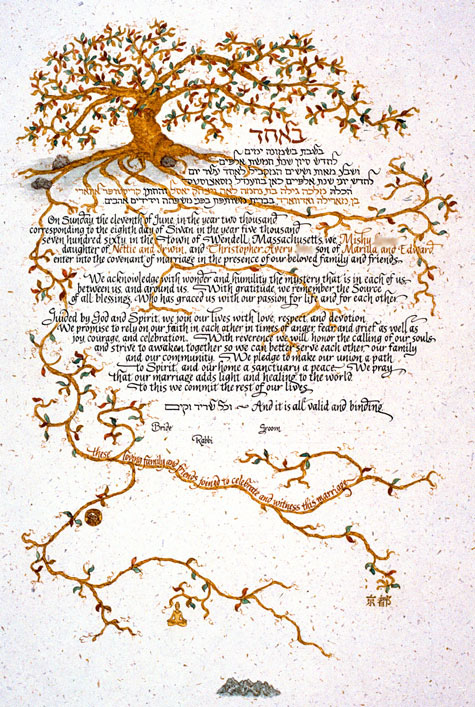 באחד
בשבת בשמונה ימים
לחדש סיון שנת חמשת אלפים
ושבע מאות וששים המקביל לאחד עשר יום
לחדש יוני שנת אלפים כאן
הכלה מלכה גילה בת נחמה לאה והחתן
בן מארילה ואדווארד בברית משפחה וידידים אהבים
On Sunday the eleventh of June in the year two thousand
corresponding to the eighth day of Sivan in the year five thousand
seven hundred sixty in the Town of Wendell, Massachusetts, we Mishy
daughter of Nettie and Irwin, and Christopher Avery son of Marilla and Edward
enter into the covenant of marriage in the presence of our beloved family and friends.
We acknowledge with wonder and humility the mystery that is in each of us,
between us, and around us. With gratitude, we remember the Source
of all blessings, Who has graced us with our passion for life and for each other.
Guided by God and Spirit, we join our lives with love, respect, and devotion.
We promise to rely on our faith in each other in times of anger, fear and grief as well as
joy, courage, and celebration. With reverence we will honor the calling of our souls
and strive to awaken together so we can better serve each other, our family
and our community. We pledge to make our union a path
to Spirit, and our home a sanctuary a peace. We pray
that our marriage adds light and healing to the world.
To this we commit the rest of our lives.
וכל שריר וקים ~ And it is all valid and binding.
Bride Groom
Rabbi
these loving family and friends joined to celebrate and witness this marriage
京都